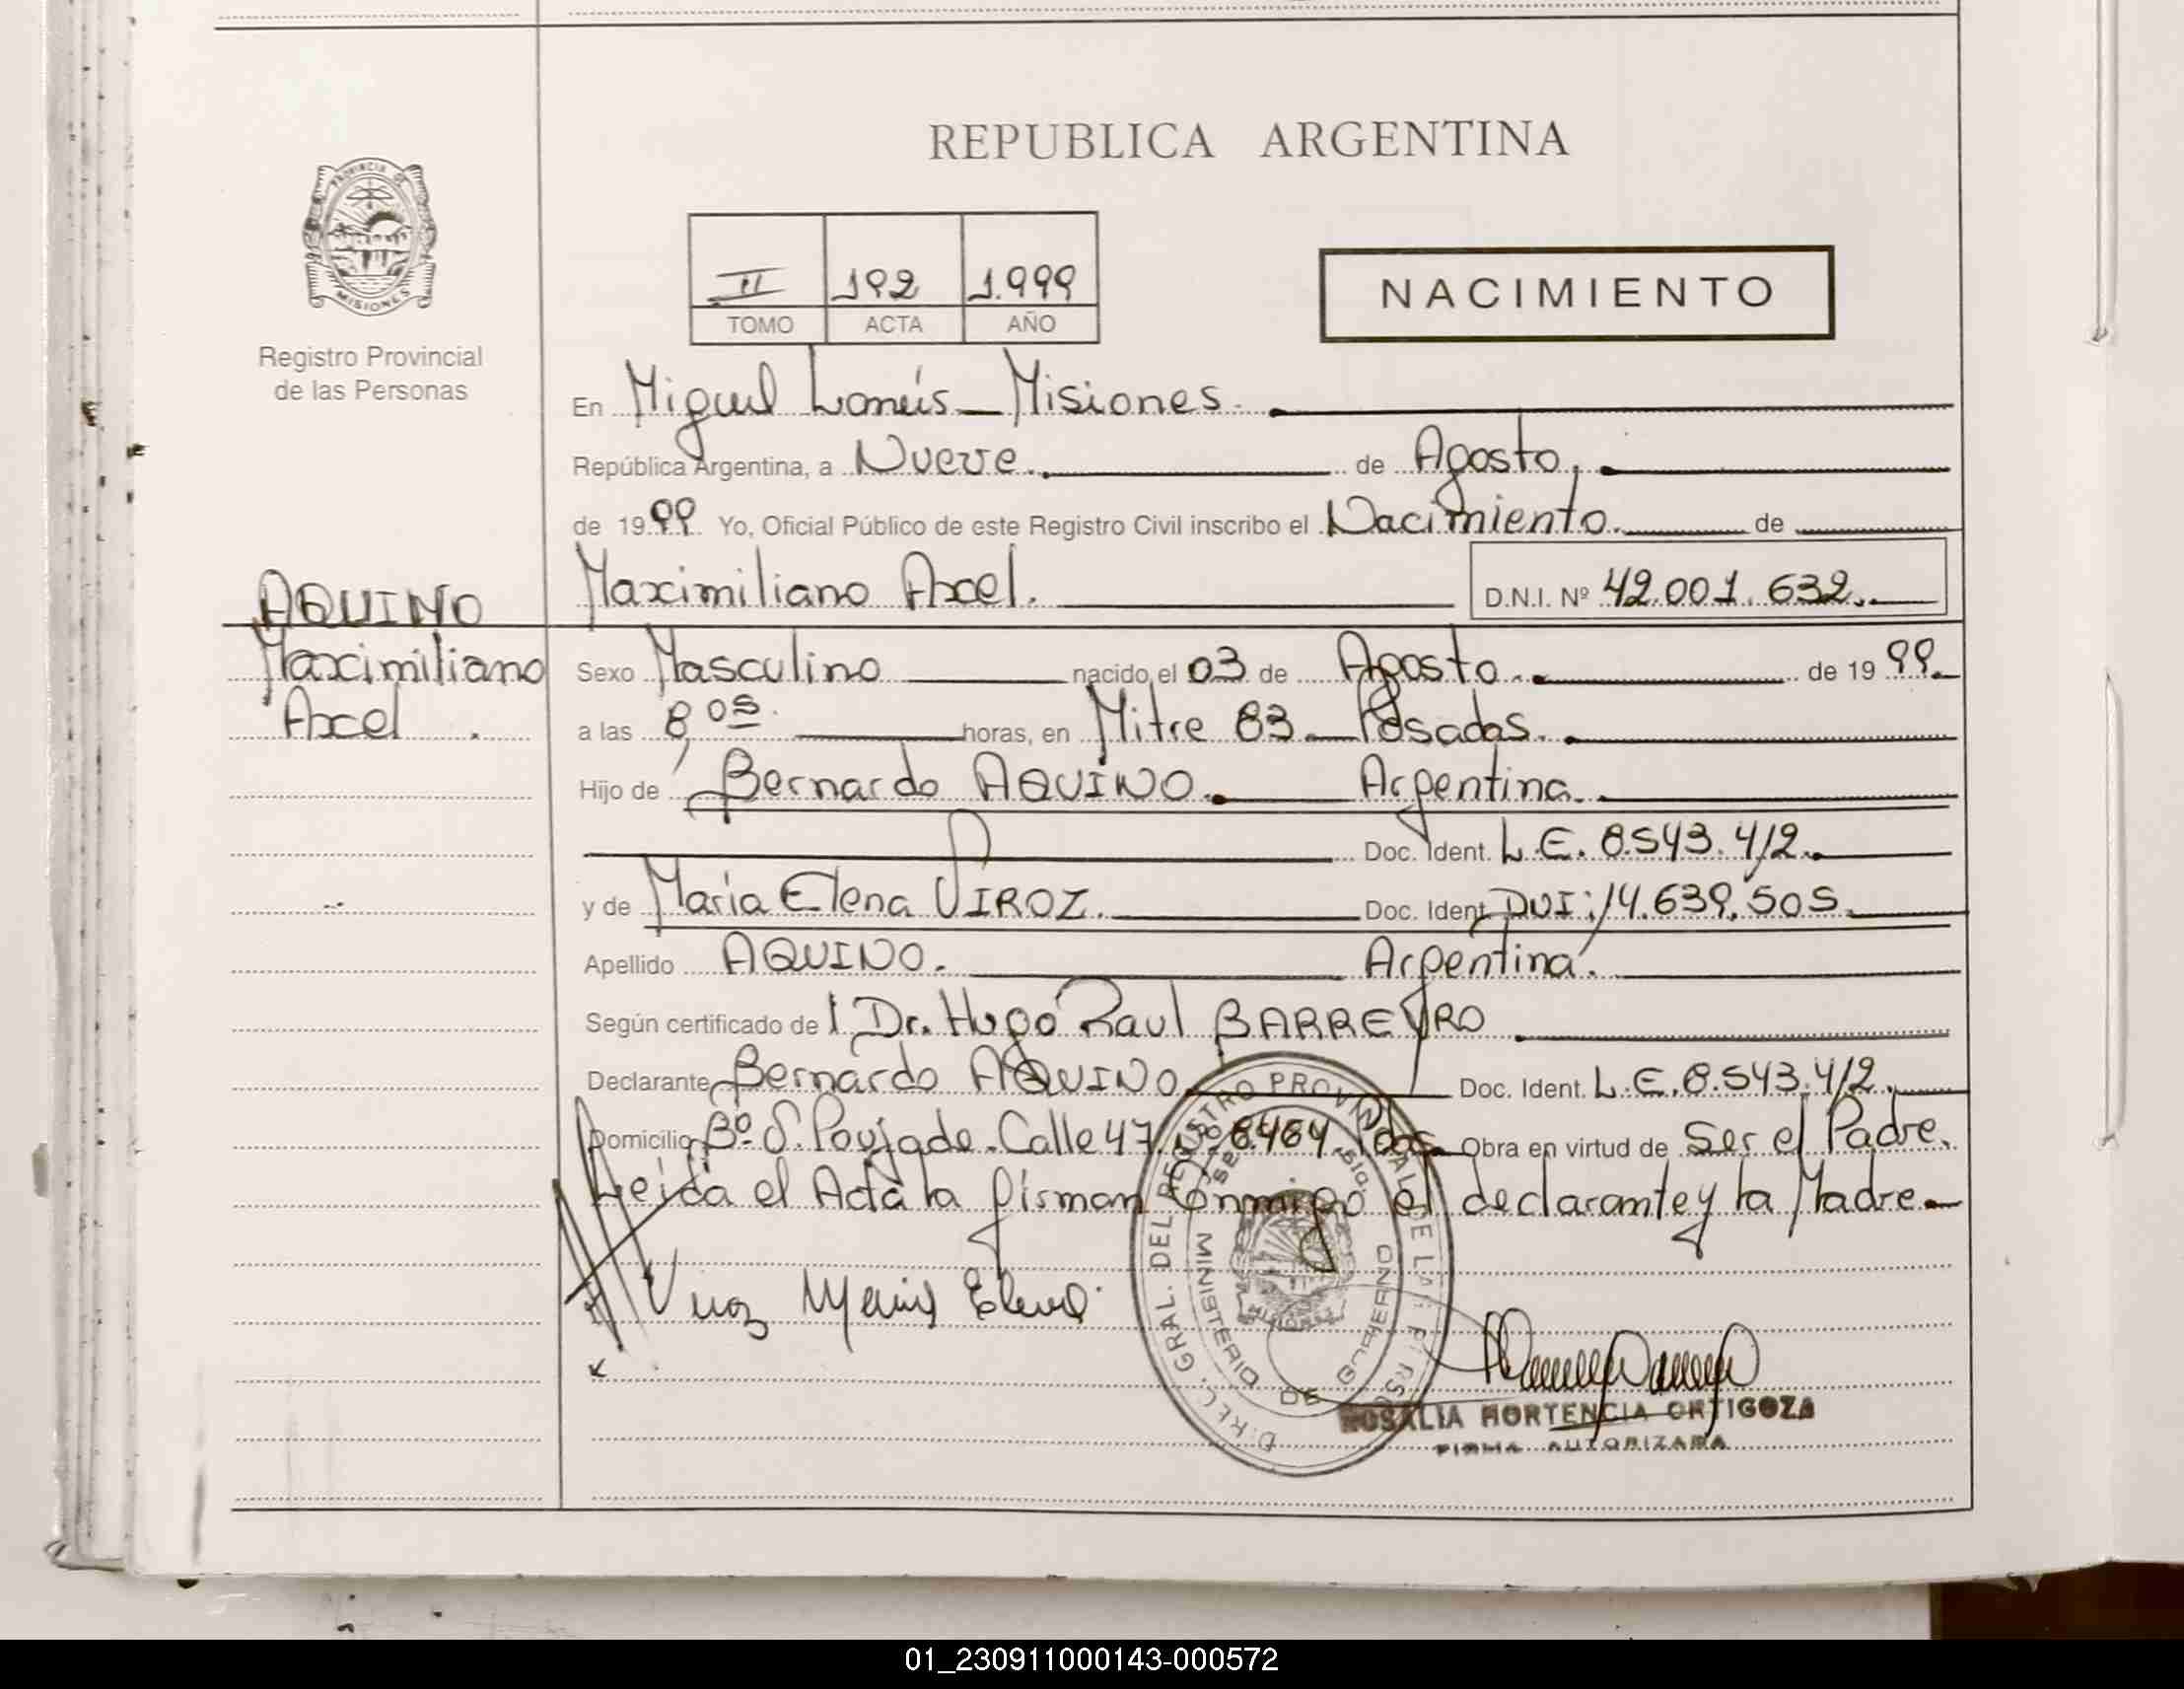 REPUBLICA ARGENTINA
PROVINCIA DE
MISIONES
Registro Provincial
de las Personas
II 192 1.999
TOMO ACTA AÑO
NACIMIENTO
En Miguel Lanús - Misiones.
República Argentina, a Nueve. de Agosto,
de 1999 Yo, Oficial Público de este Registro Civil inscribo el Nacimiento. de
Maximiliano Axel. D.N.I. Nº 42.001.632.
AQUINO
Maximiliano
Axel.
Sexo Masculino nacido el 03 de Agosto. de 1999.
a las 8,05. horas, en Mitre 83 - Posadas.
Hijo de Bernardo AQUINO. Argentina.
Doc. Ident. L.E. 8.543.412.
y de María Elena VIROZ. Doc. Ident. DUI: 14.639.505.
Apellido AQUINO. Argentina.
Según certificado de l Dr. Hugo Raul BARREYRO
Declarante Bernardo AQUINO Doc. Ident. L.E. 8.543.412.
Domicilio Bº S. Poujade - Calle 47 Nº 8464 Pdas. Obra en virtud de Ser el Padre.
Leída el Acta la firman conmigo el declarante y la Madre.
Viroz Maria Elena
DIREC. GRAL. DEL REGISTRO PROVINCIAL DE LAS PERSONAS
MINISTERIO DE GOBIERNO
ROSALIA HORTENCIA ORTIGOZA
FIRMA AUTORIZADA
01_230911000143-000572